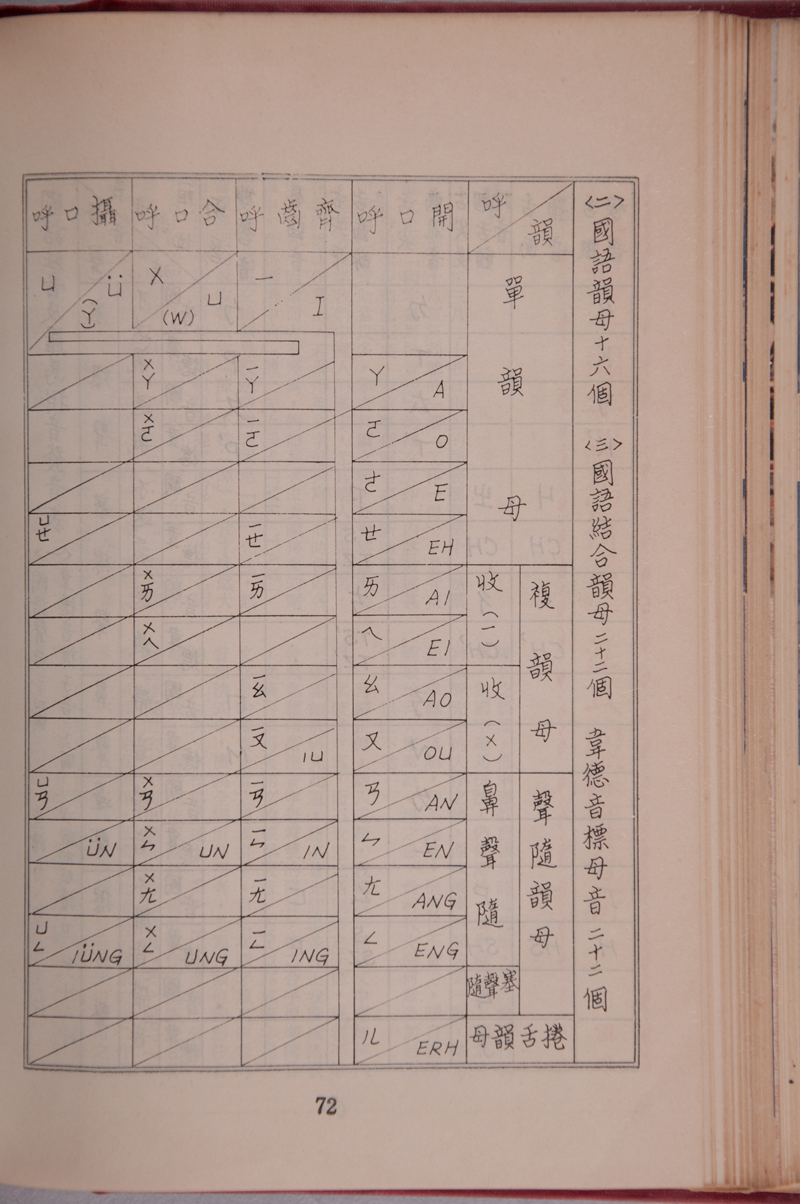 〈二〉國語韻母十六個 〈三〉國語結合韻母二十二個 韋德音標母音二十二個
呼 韻 單韻母 收(一) 複韻母 收(ㄨ) 鼻聲隨 聲隨韻母 塞聲隨 捲舌韻母
開口呼
ㄚ A
ㄛ O
ㄜ E
ㄝ EH
ㄞ AI
ㄟ EI
ㄠ AO
ㄡ OU
ㄢ AN
ㄣ EN
ㄤ ANG
ㄥ ENG
ㄦ ERH
齊齒呼
ㄧ I
ㄧㄚ
ㄧㄛ
ㄧㄝ
ㄧㄞ
ㄧㄠ
ㄧㄡ IU
ㄧㄢ
ㄧㄣ IN
ㄧㄤ
ㄧㄥ ING
合口呼
ㄨ U (W)
ㄨㄚ
ㄨㄛ
ㄨㄞ
ㄨㄟ
ㄨㄢ
ㄨㄣ UN
ㄨㄤ
ㄨㄥ UNG
攝口呼
ㄩ Ü (Y)
ㄩㄝ
ㄩㄢ
ÜN
ㄩㄥ IÜNG
72